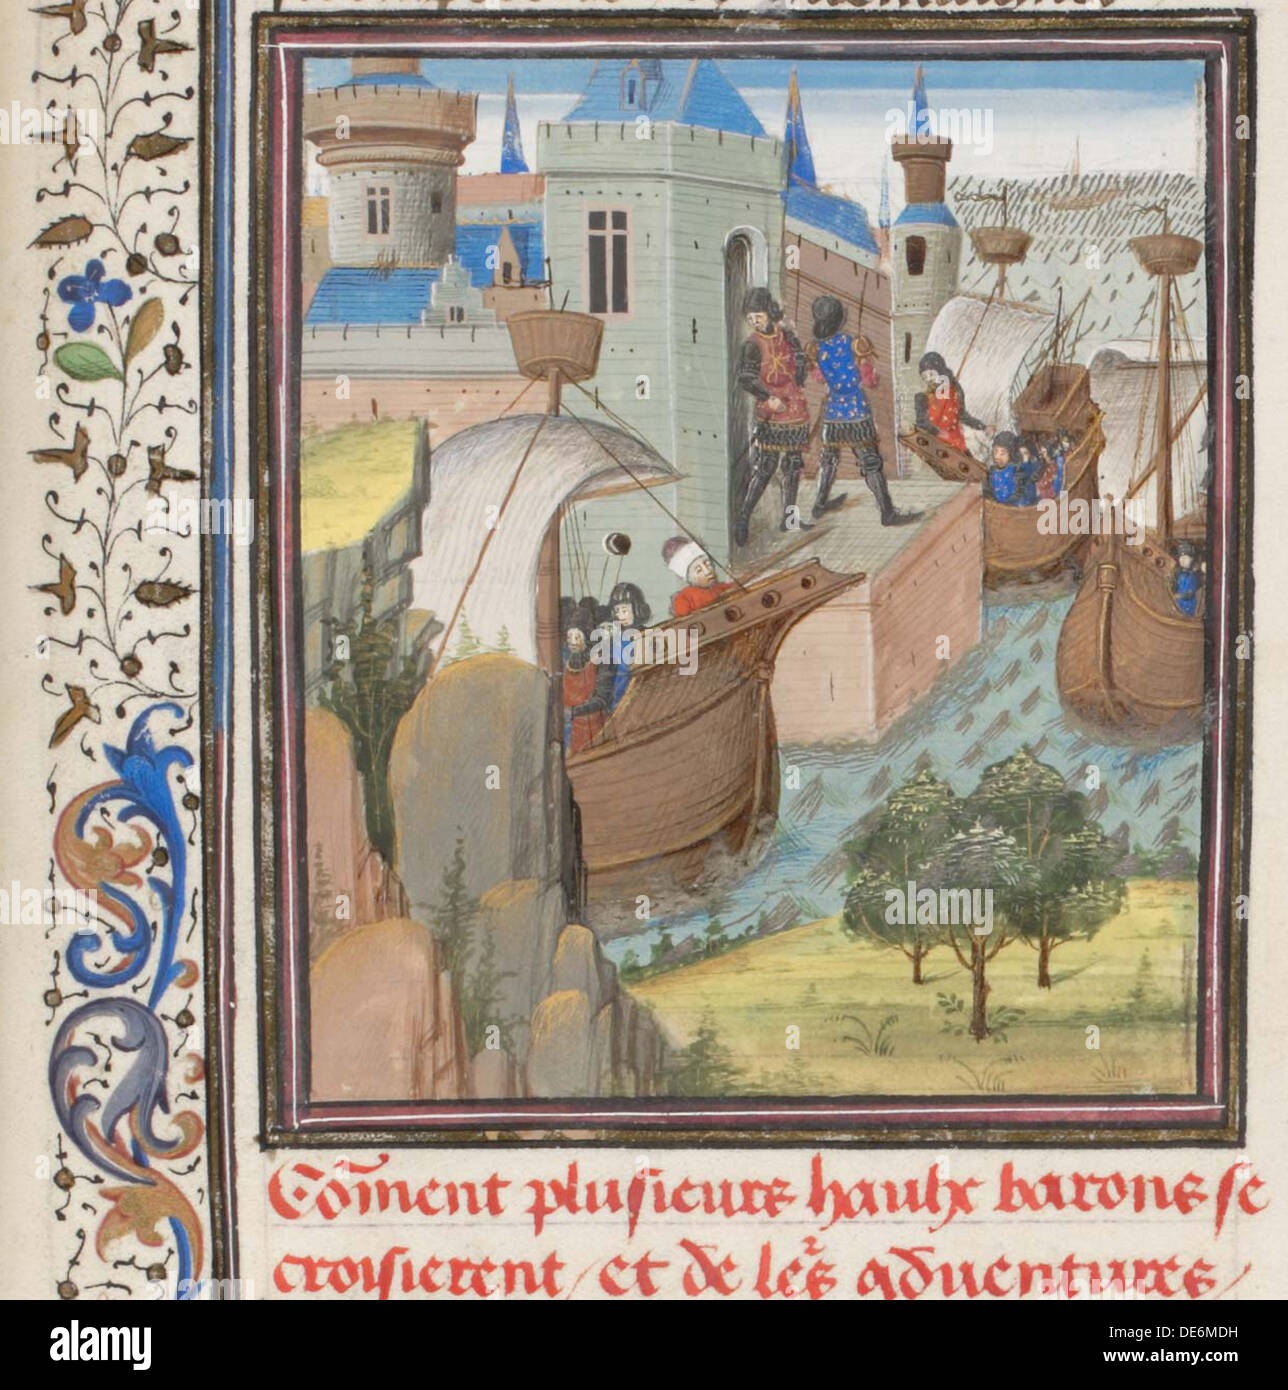 Com̄ent plusieurs haulx barons se
croisierent / et de le᷒s aduentures /
alamy
Image ID: DE6MDH
www.alamy.com